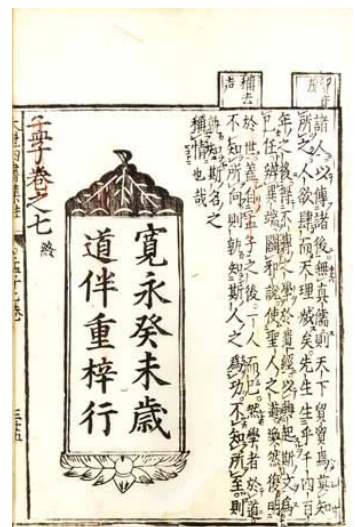 諸人以傳諸後無真儒則天下貿貿焉莫知
所之人欲肆而天理滅矣先生生乎千四百
年之後得不傳之學於遺經以興起斯文為
己任辨異端闢邪說使聖人之道渙然復明
於世蓋自孟子之後一人而已然學者於道
不知所向則孰知斯人之為功不知所至則
孰知斯名之
稱情也哉
寛永癸未歳
道伴重梓行
孟子卷之七 終